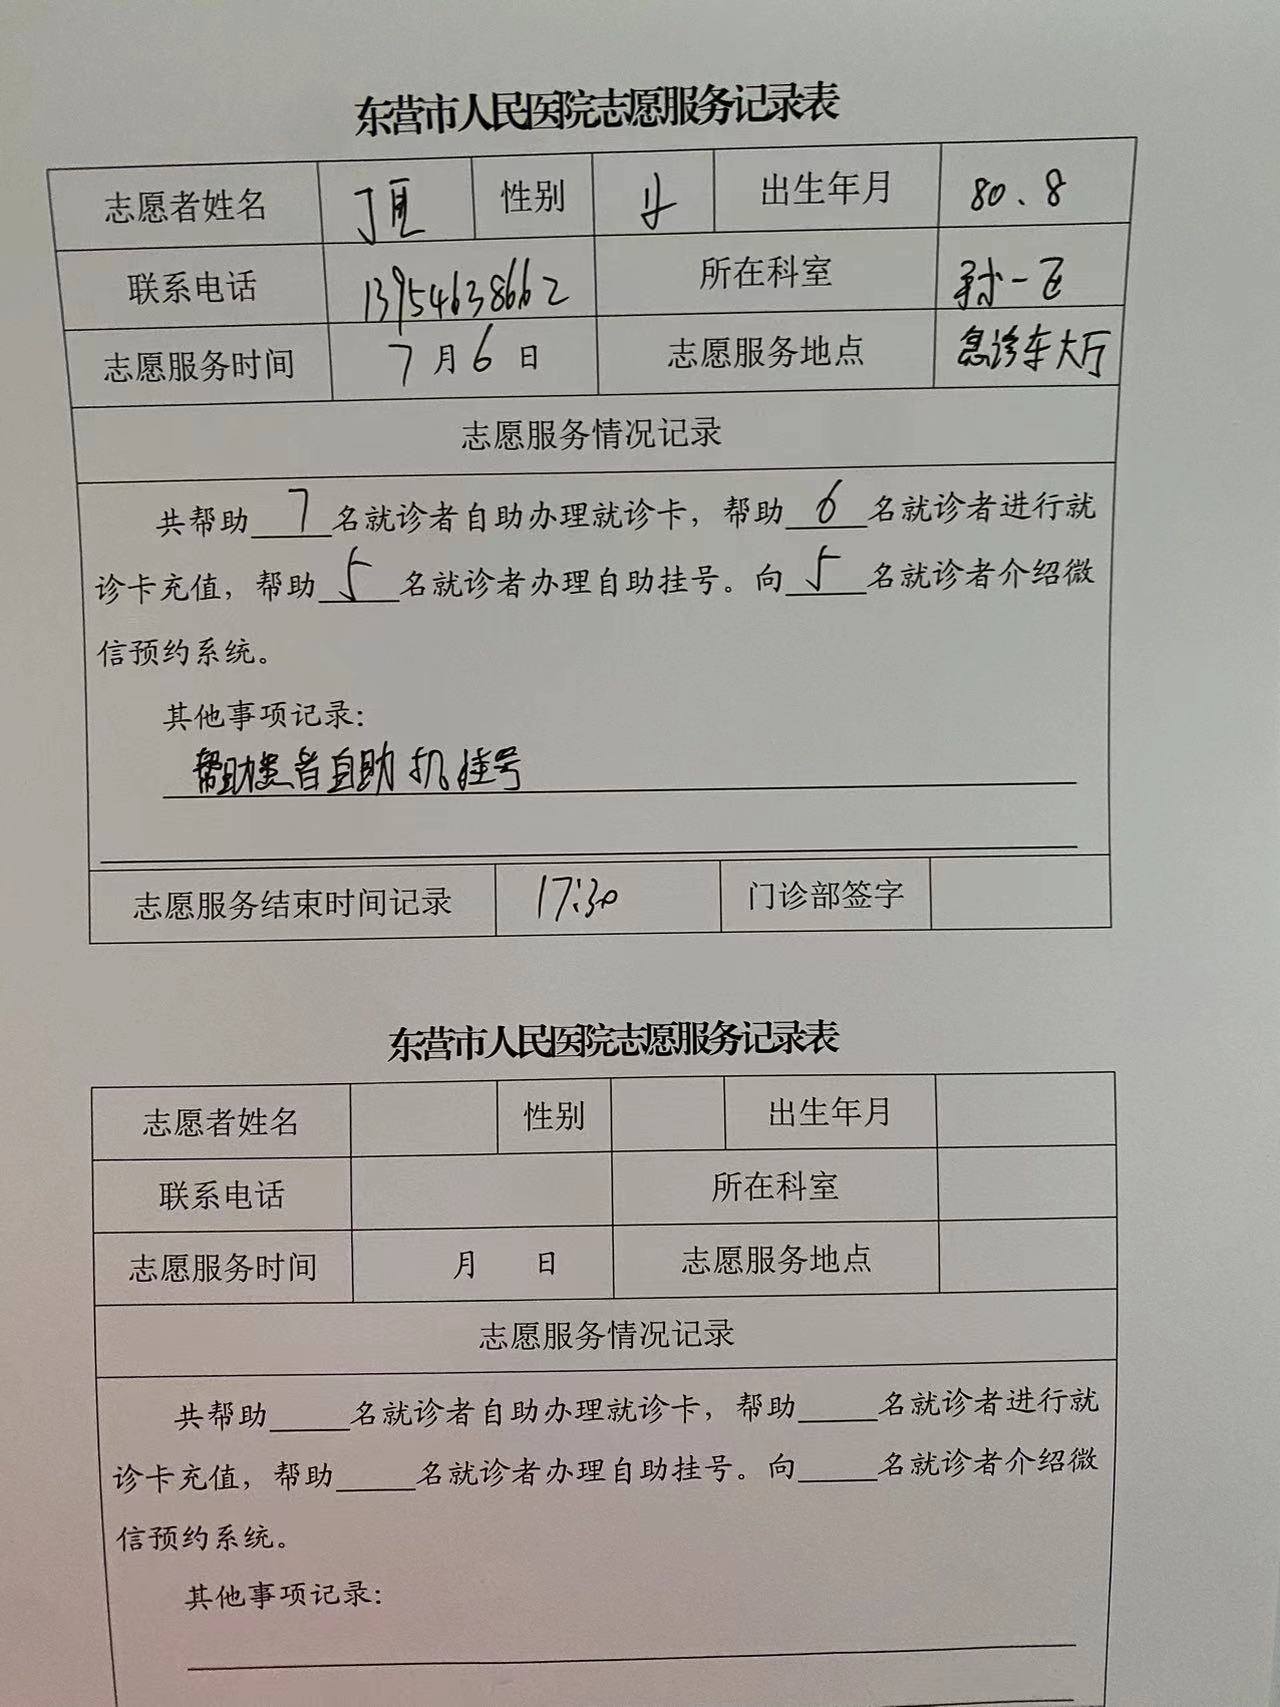 东营市人民医院志愿服务记录表
志愿者姓名 性别 女 出生年月 80.8
联系电话 13954638662 所在科室
志愿服务时间 7月6日 志愿服务地点 急诊车大厅
志愿服务情况记录
共帮助7名就诊者自助办理就诊卡，帮助6名就诊者进行就
诊卡充值，帮助5名就诊者办理自助挂号。向5名就诊者介绍微
信预约系统。
其他事项记录：
帮助患者自助机挂号
志愿服务结束时间记录 17:30 门诊部签字
东营市人民医院志愿服务记录表
志愿者姓名 性别 出生年月
联系电话 所在科室
志愿服务时间 月 日 志愿服务地点
志愿服务情况记录
共帮助_____名就诊者自助办理就诊卡，帮助_____名就诊者进行就
诊卡充值，帮助_____名就诊者办理自助挂号。向_____名就诊者介绍微
信预约系统。
其他事项记录：